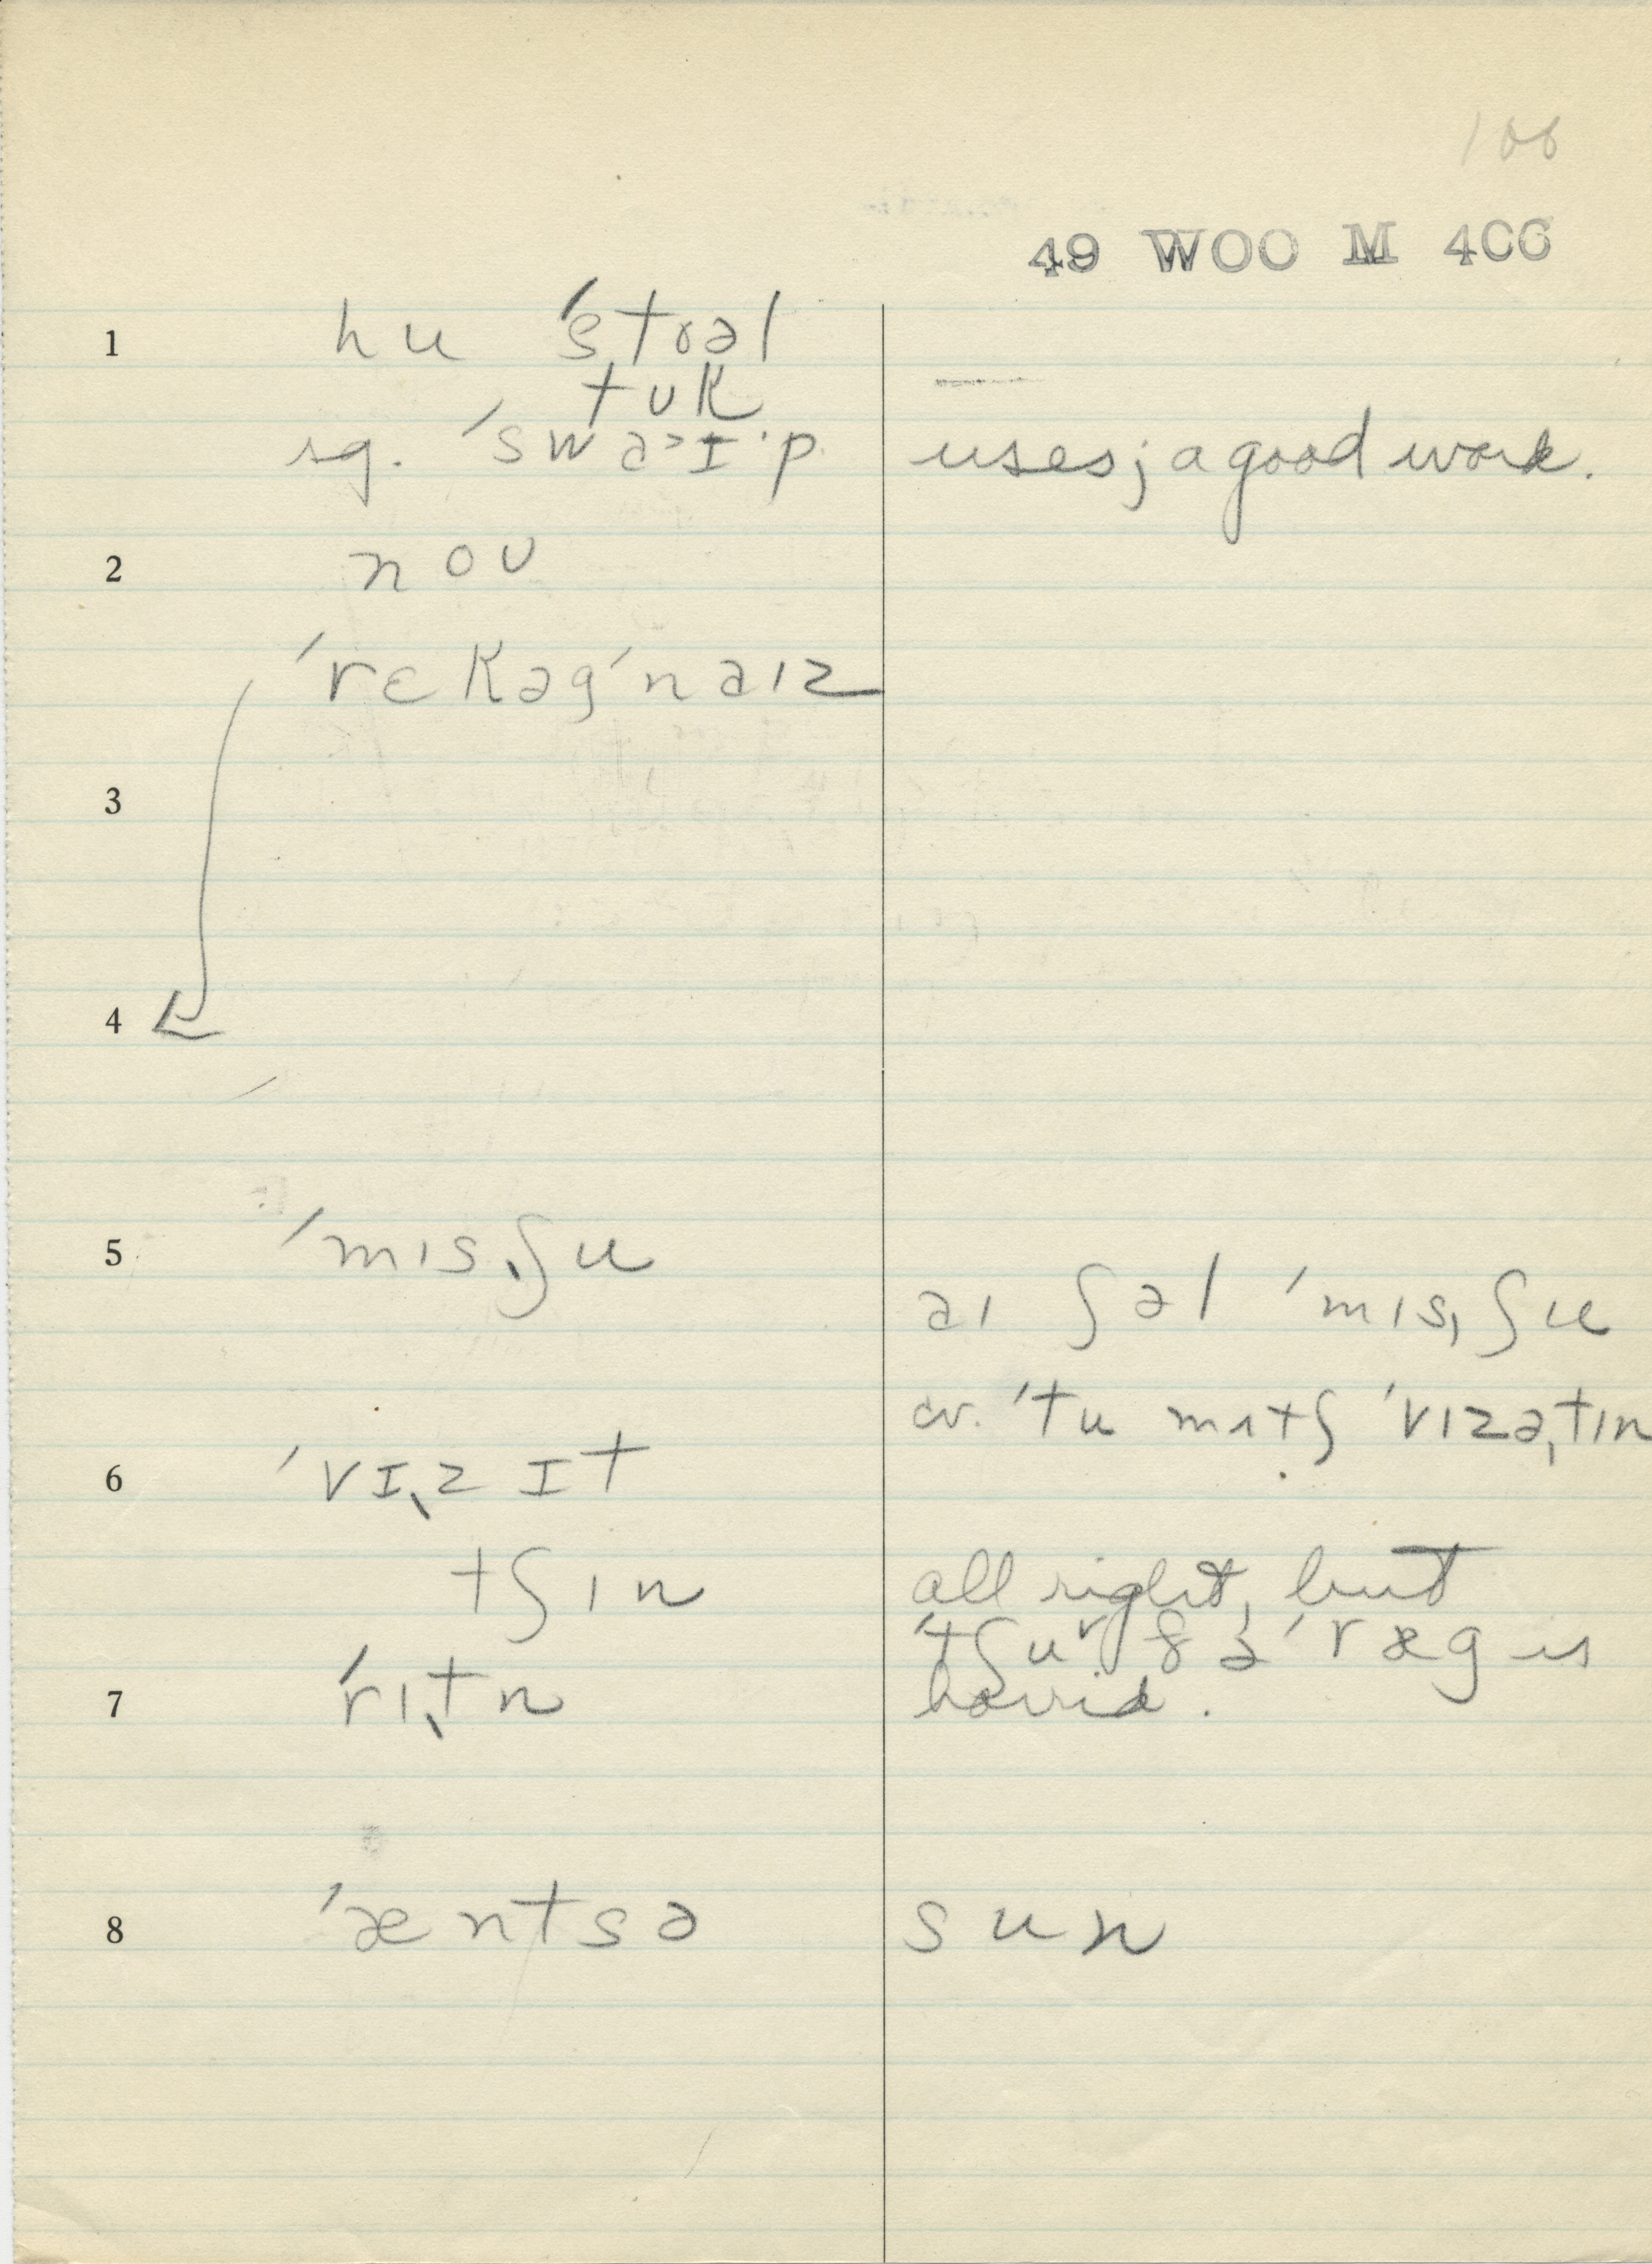 106
49 WOO M 4CC
1 hu ˈstoəl
tʊk
sg. ˈswəɪˑp uses; a good work.
2 noʊ
ˈrɛkəgˈnaɪz
3
4
5 ˈmɪsˌʃu
aɪ ʃəl ˈmɪsˌʃu
cv. ˈtu mɪtʃ ˈvɪzəˌtɪn
6 ˈvɪˌzɪt
tʃɪn all right, but
ˈræg is
7 ˈrɪˌtn horrid.
8 ˈæntsə sun